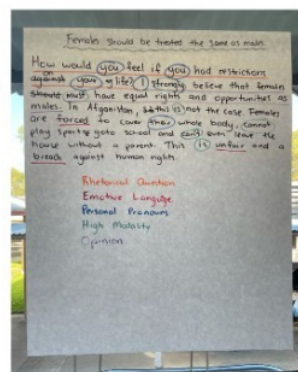 Females should be treated the same as males.
How would you feel if you had restrictions
on
against your life? I strongly believe that females
should must have equal rights and opportunities as
males. In Afganistan, this is not the case Females
are forced to cover their whole body, cannot
play sports, goto school and can't even leave the
house without a parent. This is unfair and a
breach against human rights.
Rhetorical Question
Emotive Languge
Personal Pronouns
High Modality
Opinion